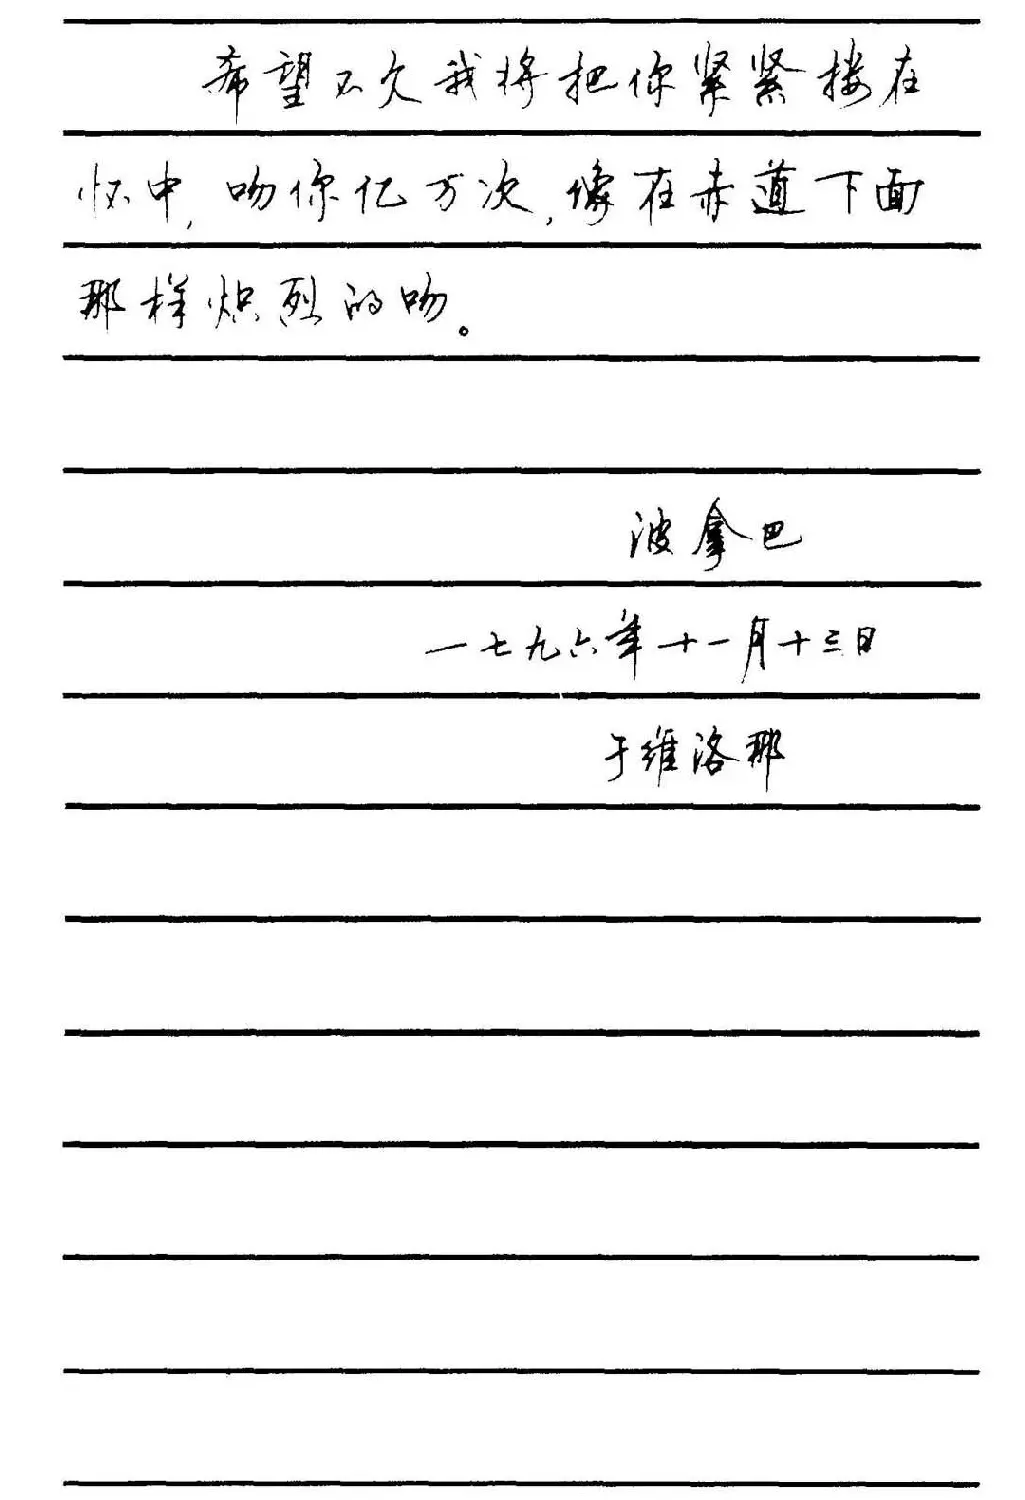 希望不久我将把你紧紧搂在
怀中,吻你亿万次,像在赤道下面
那样炽烈的吻。
波拿巴
一七九六年十一月十三日
于维洛那